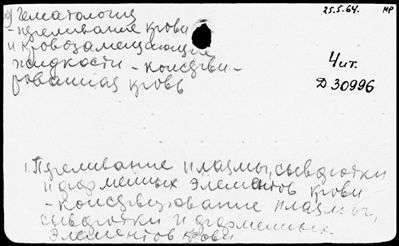 в) Гематология
25.5.64. МР
- переливание крови
и кровозамещающие
жидкости - консерви-
рованная кровь
Чит.
Д 30996
1. Переливание плазмы, сыворотки
и форменных элементов крови
- консервирование плазмы,
сыворотки и форменных
элементов крови